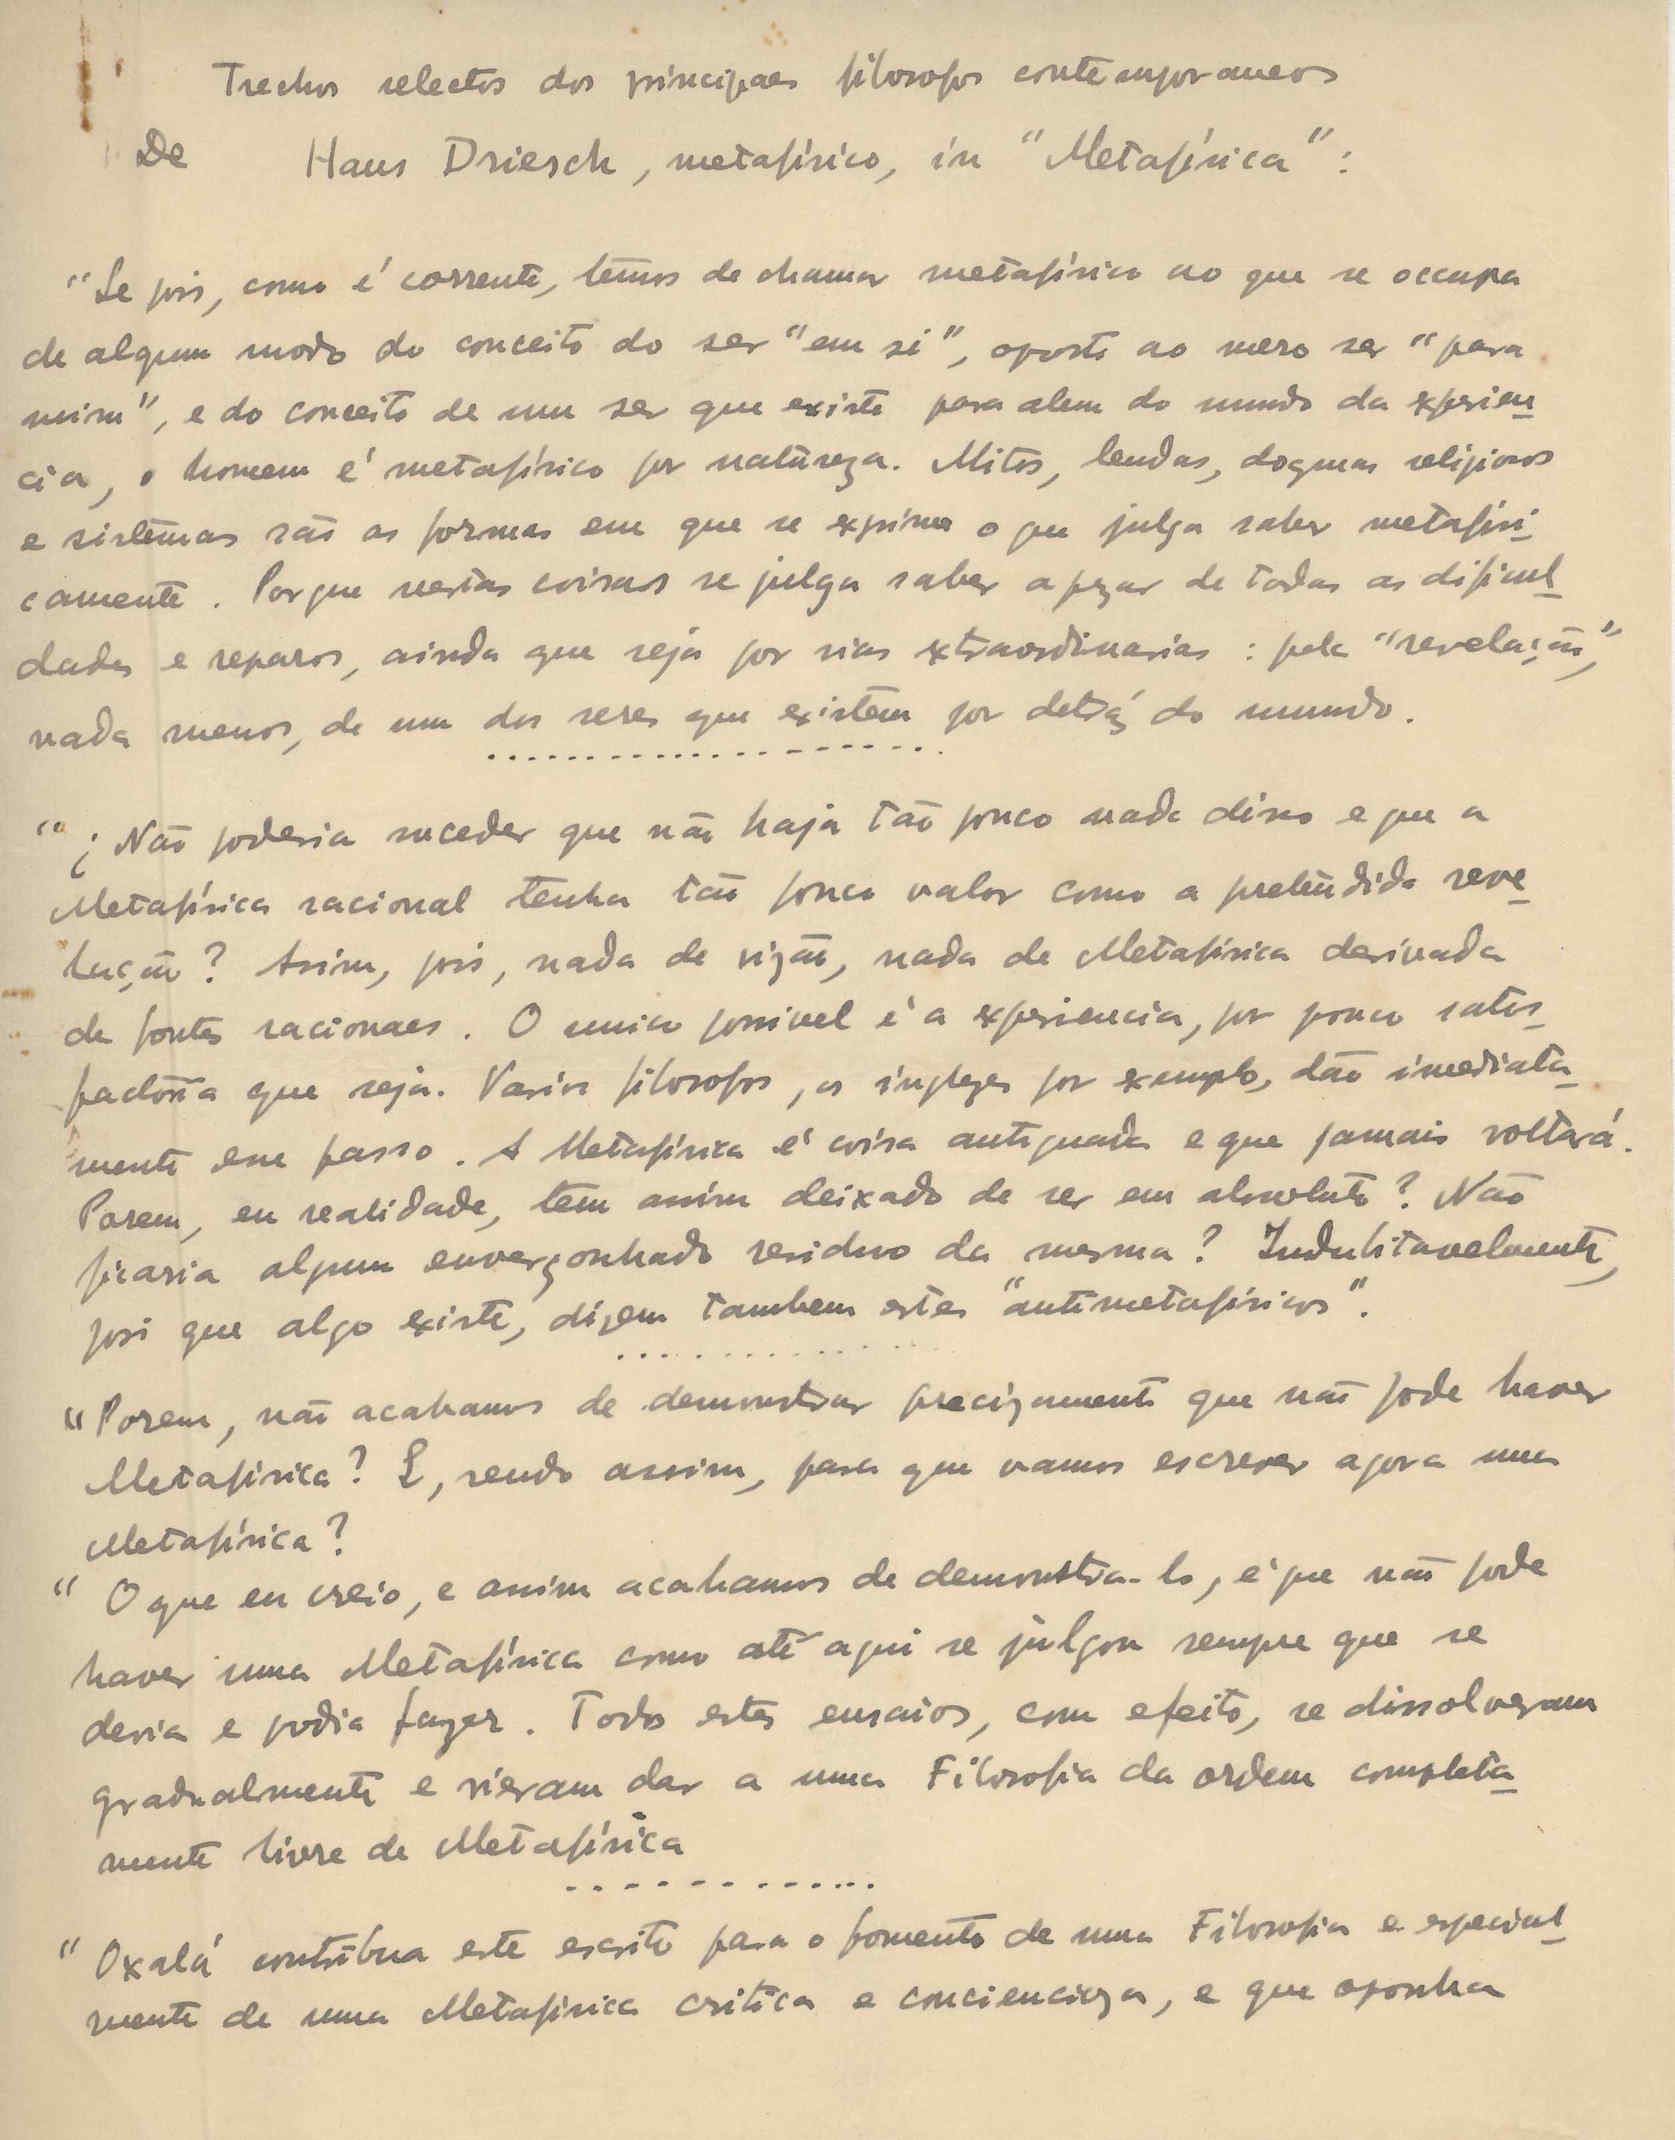 Trechos selectos dos principaes filosofos contemporaneos
De Hans Driesch, metafísico, in "Metafísica":
"Se pois, como é corrente, temos de chamar metafísico ao que se occupa
de algum modo do conceito do ser "em si", oposto ao mero ser "para
mim", e do conceito de um ser que existe para alem do mundo da experien
cia, o homem é metafísico por natureza. Mitos, lendas, dogmas religiosos
e sistemas são as formas em que se exprime o que julga saber metafísi
camente. Porque nestas coisas se julga saber apezar de todas as dificul
dades e reparos, ainda que seja por vias extraordinarias: pela "revelação",
nada menos, de um dos seres que existem por detráz do mundo.
....................
"¿Não poderia suceder que não haja tão pouco nada disso e que a
Metafísica racional tenha tão pouco valor como a pretendida reve
lação? Assim, pois, nada de vizão, nada de Metafísica derivada
de fontes racionaes. O unico possivel é a experiencia, por pouco satis
factoria que seja. Varios filosofos, os inglezes por exemplo, dão imediata
mente esse passo. A Metafísica é coisa antiquada e que jamais voltará.
Porem, en realidade, tem assim deixado de ser em absoluto? Não
ficaria algum envergonhado residuo da mesma? Indubitavelmente,
posi que algo existe, dizem tambem estes "antimetafísicos".
..............
"Porem, não acabamos de demonstrar precizamente que não pode haver
Metafísica? E, sendo assim, para que vamos escrever agora uma
Metafísica?
"O que eu creio, e assim acabamos de demonstra-lo, é que não pode
haver uma Metafísica como até aqui se julgou sempre que se
devia e podia fazer. Todos estes ensaios, com efeito, se dissolveram
gradualmente e vieram dar a uma Filosofia da ordem completa
mente livre de Metafísica
.............
"Oxalá contribua este escrito para o fomento de uma Filosofia e especial
mente de uma Metafísica critica e concienciosa, e que oponha